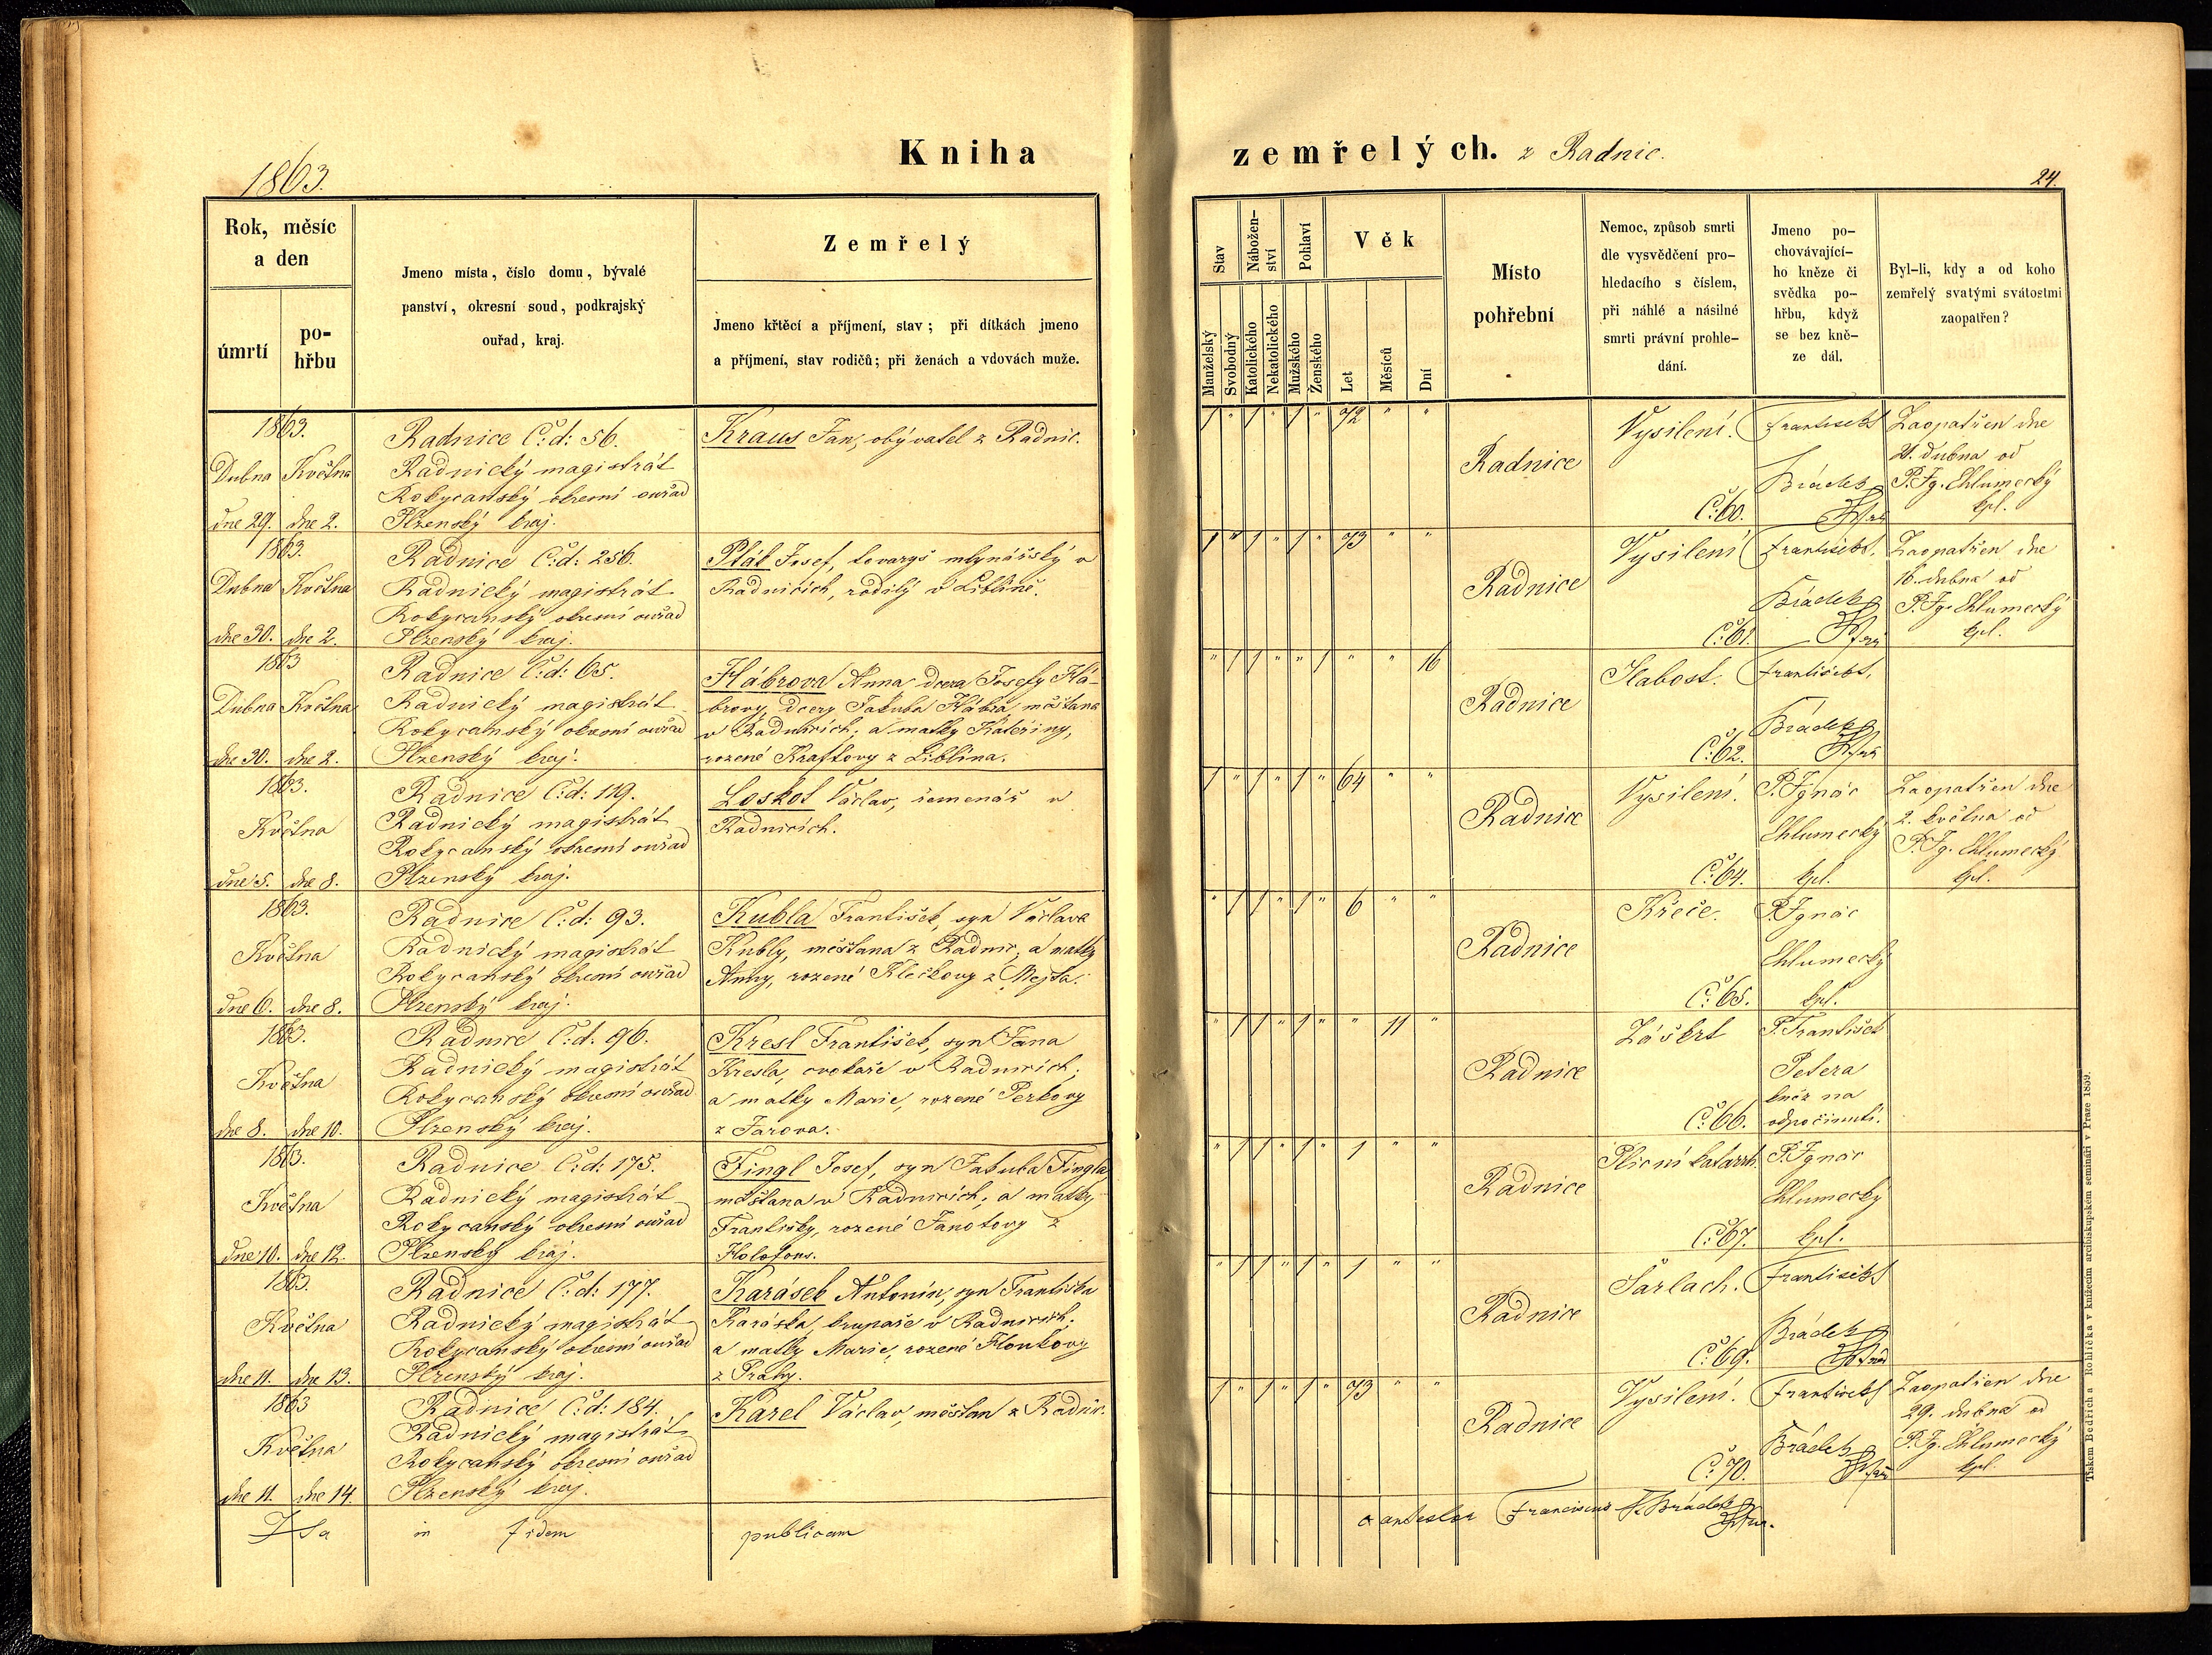 Kniha
zemřelých. z Radnic.
1863.
24.
Rok, měsíc
a den
úmrtí
po-
hřbu
Jmeno místa, číslo domu, bývalé
panství, okresní soud, podkrajský
ouřad, kraj.
Zemřelý
Jmeno křtěcí a příjmení, stav; při dítkách jmeno
a příjmení, stav rodičů; při ženách a vdovách muže.
Stav
Nábožen-
ství
Pohlaví
Věk
Manželský
Svobodný
Katolického
Nekatolického
Mužského
Ženského
Let
Měsíců
Dní
Místo
pohřební
Nemoc, způsob smrti
dle vysvědčení pro-
hledacího s číslem,
při náhlé a násilné
smrti právní prohle-
dání.
Jmeno po-
chovávající-
ho kněze či
svědka po-
hřbu, když
se bez kně-
ze dál.
Byl-li, kdy a od koho
zemřelý svatými svátostmi
zaopatřen?
1863.
Dubna Května
dne 29. dne 2.
Radnice Č: d: 56.
Radnický magistrát
Rokycanský okresní ouřad
Plzenský kraj.
Kraus Jan, obývatel z Radnic.
1 " 1 " 1 " 72 " "
Radnice
Vysilení.
Č: 60.
František
Brádek
Zaopatřen dne
21. dubna od
P. Ig. Chlumecký
kpl.
1863.
Dubna Května
dne 30. dne 2.
Radnice Č: d: 256.
Radnický magistrát
Rokycanský okresní ouřad
Plzenský kraj.
Pták Josef, tovaryš mlynářský v
Radnicích, rodilý v Liblíně.
1 " 1 " 1 " 73 " "
Radnice
Vysilení
Č: 61.
František
Brádek
Zaopatřen dne
16. dubna od
P. Ig. Chlumecký
kpl.
1863
Dubna Května
dne 30. dne 2.
Radnice Č: d: 65.
Radnický magistrát
Rokycanský okresní ouřad
Plzenský kraj.
Hábrova Anna dcera Josefy Há-
brovy, dcery Jakuba Hábra měštana
v Radnicích; a matky Kateřiny,
rozené Kraftovy z Liblína.
" 1 1 " " 1 " " 16
Radnice
Slabost.
Č: 62.
František
Brádek
1863.
Května
dne 5. dne 8.
Radnice Č: d: 119.
Radnický magistrát
Rokycanský okresní ouřad
Plzenský kraj.
Loskot Václav, řemenář v
Radnicích.
1 " 1 " 1 " 64 " "
Radnice
Vysilení.
Č: 64.
P. Ignác
Chlumecký
kpl.
Zaopatřen dne
2. května od
P. Ig. Chlumecký
kpl.
1863.
Května
dne 6. dne 8.
Radnice Č: d: 93.
Radnický magistrát
Rokycanský okresní ouřad
Plzenský kraj.
Kubla František, syn Václava
Kubly, měštana z Radnic, a matky
Anny, rozené Klečkovy z Mejta.
" 1 1 " 1 " 6 " "
Radnice
Křeče.
Č: 65.
P. Ignác
Chlumecký
kpl.
1863.
Května
dne 8. dne 10.
Radnice Č: d: 96.
Radnický magistrát
Rokycanský okresní ouřad
Plzenský kraj.
Kresl František, syn Jana
Kresla, cvokaře v Radnicích;
a matky Marie, rozené Perkovy
z Jarova.
" 1 1 " 1 " " 11 "
Radnice
Záškrt
Č: 66.
P. František
Petera
kněz na
odpočinutí.
1863.
Května
dne 10. dne 12.
Radnice Č: d: 175.
Radnický magistrát
Rokycanský okresní ouřad
Plzenský kraj.
Fingl Josef, syn Jakuba Fingla
měštana v Radnicích; a matky
Františky, rozené Janotovy z
" 1 1 " 1 " 1 " "
Radnice
Plicní katarrh.
Č: 67.
P. Ignác
Chlumecký
kpl.
1863.
Května
dne 11. dne 13.
Radnice Č: d: 177.
Radnický magistrát
Rokycanský okresní ouřad
Plzenský kraj.
Karásek Antonín, syn Františka
Karáska, krupaře v Radnicích;
a matky Marie, rozené Houkovy
z Prahy.
" 1 1 " 1 " 1 " "
Radnice
Šarlach.
Č: 69.
František
Brádek
1863
Května
dne 11. dne 14.
Radnice Č: d: 184.
Radnický magistrát
Rokycanský okresní ouřad
Plzenský kraj.
Karel Václav, měšťan z Radnic.
1 " 1 " 1 " 73 " "
Radnice
Vysilení.
Č: 70.
František
Brádek
Zaopatřen dne
29. dubna od
P. Ig. Chlumecký
kpl.
Ita in fidem publicam
Franciscus Brádek
Tiskem Bedřich a Rohlíčka v knížecím arcibiskupském semináři v Praze 1859.